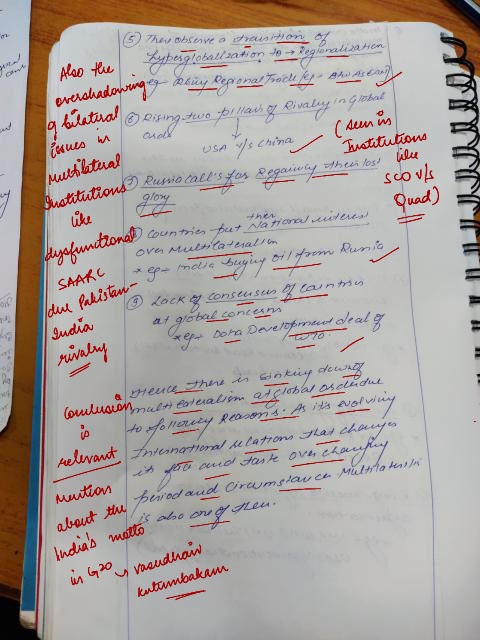 ⑤ There observe a transition of
hyperglobalization to → Regionalization
eg → Rising Regional Trade (eg → Asean)
⑥ Rising two pillars of Rivalry in Global
order
↓
USA v/s China
⑦ Russia call's for Regaining their lost
glory
⑧ Countries put their National interest
over Multilateralism
* eg → India buying oil from Russia
⑨ Lack of consensus of countries
at global concerns
* eg → Doha Development deal of
WTO.
Hence there is sinking down of
multilateralism at global order due
to following Reasons. As it's evolving
International relations that changes
its face and taste over changing
period and Circumstances Multilateralism
is also one of them.
Also the
overshadowing
of bilateral
issues in
Multilateral
Institutions
like
dysfunctional
SAARC
due Pakistan-
India
rivalry
Conclusion
is
relevant
Mention
about the
India's motto
in G20 → vasudhaiv
kutumbakam
(Seen in
Institutions
like
SCO v/s
Quad)